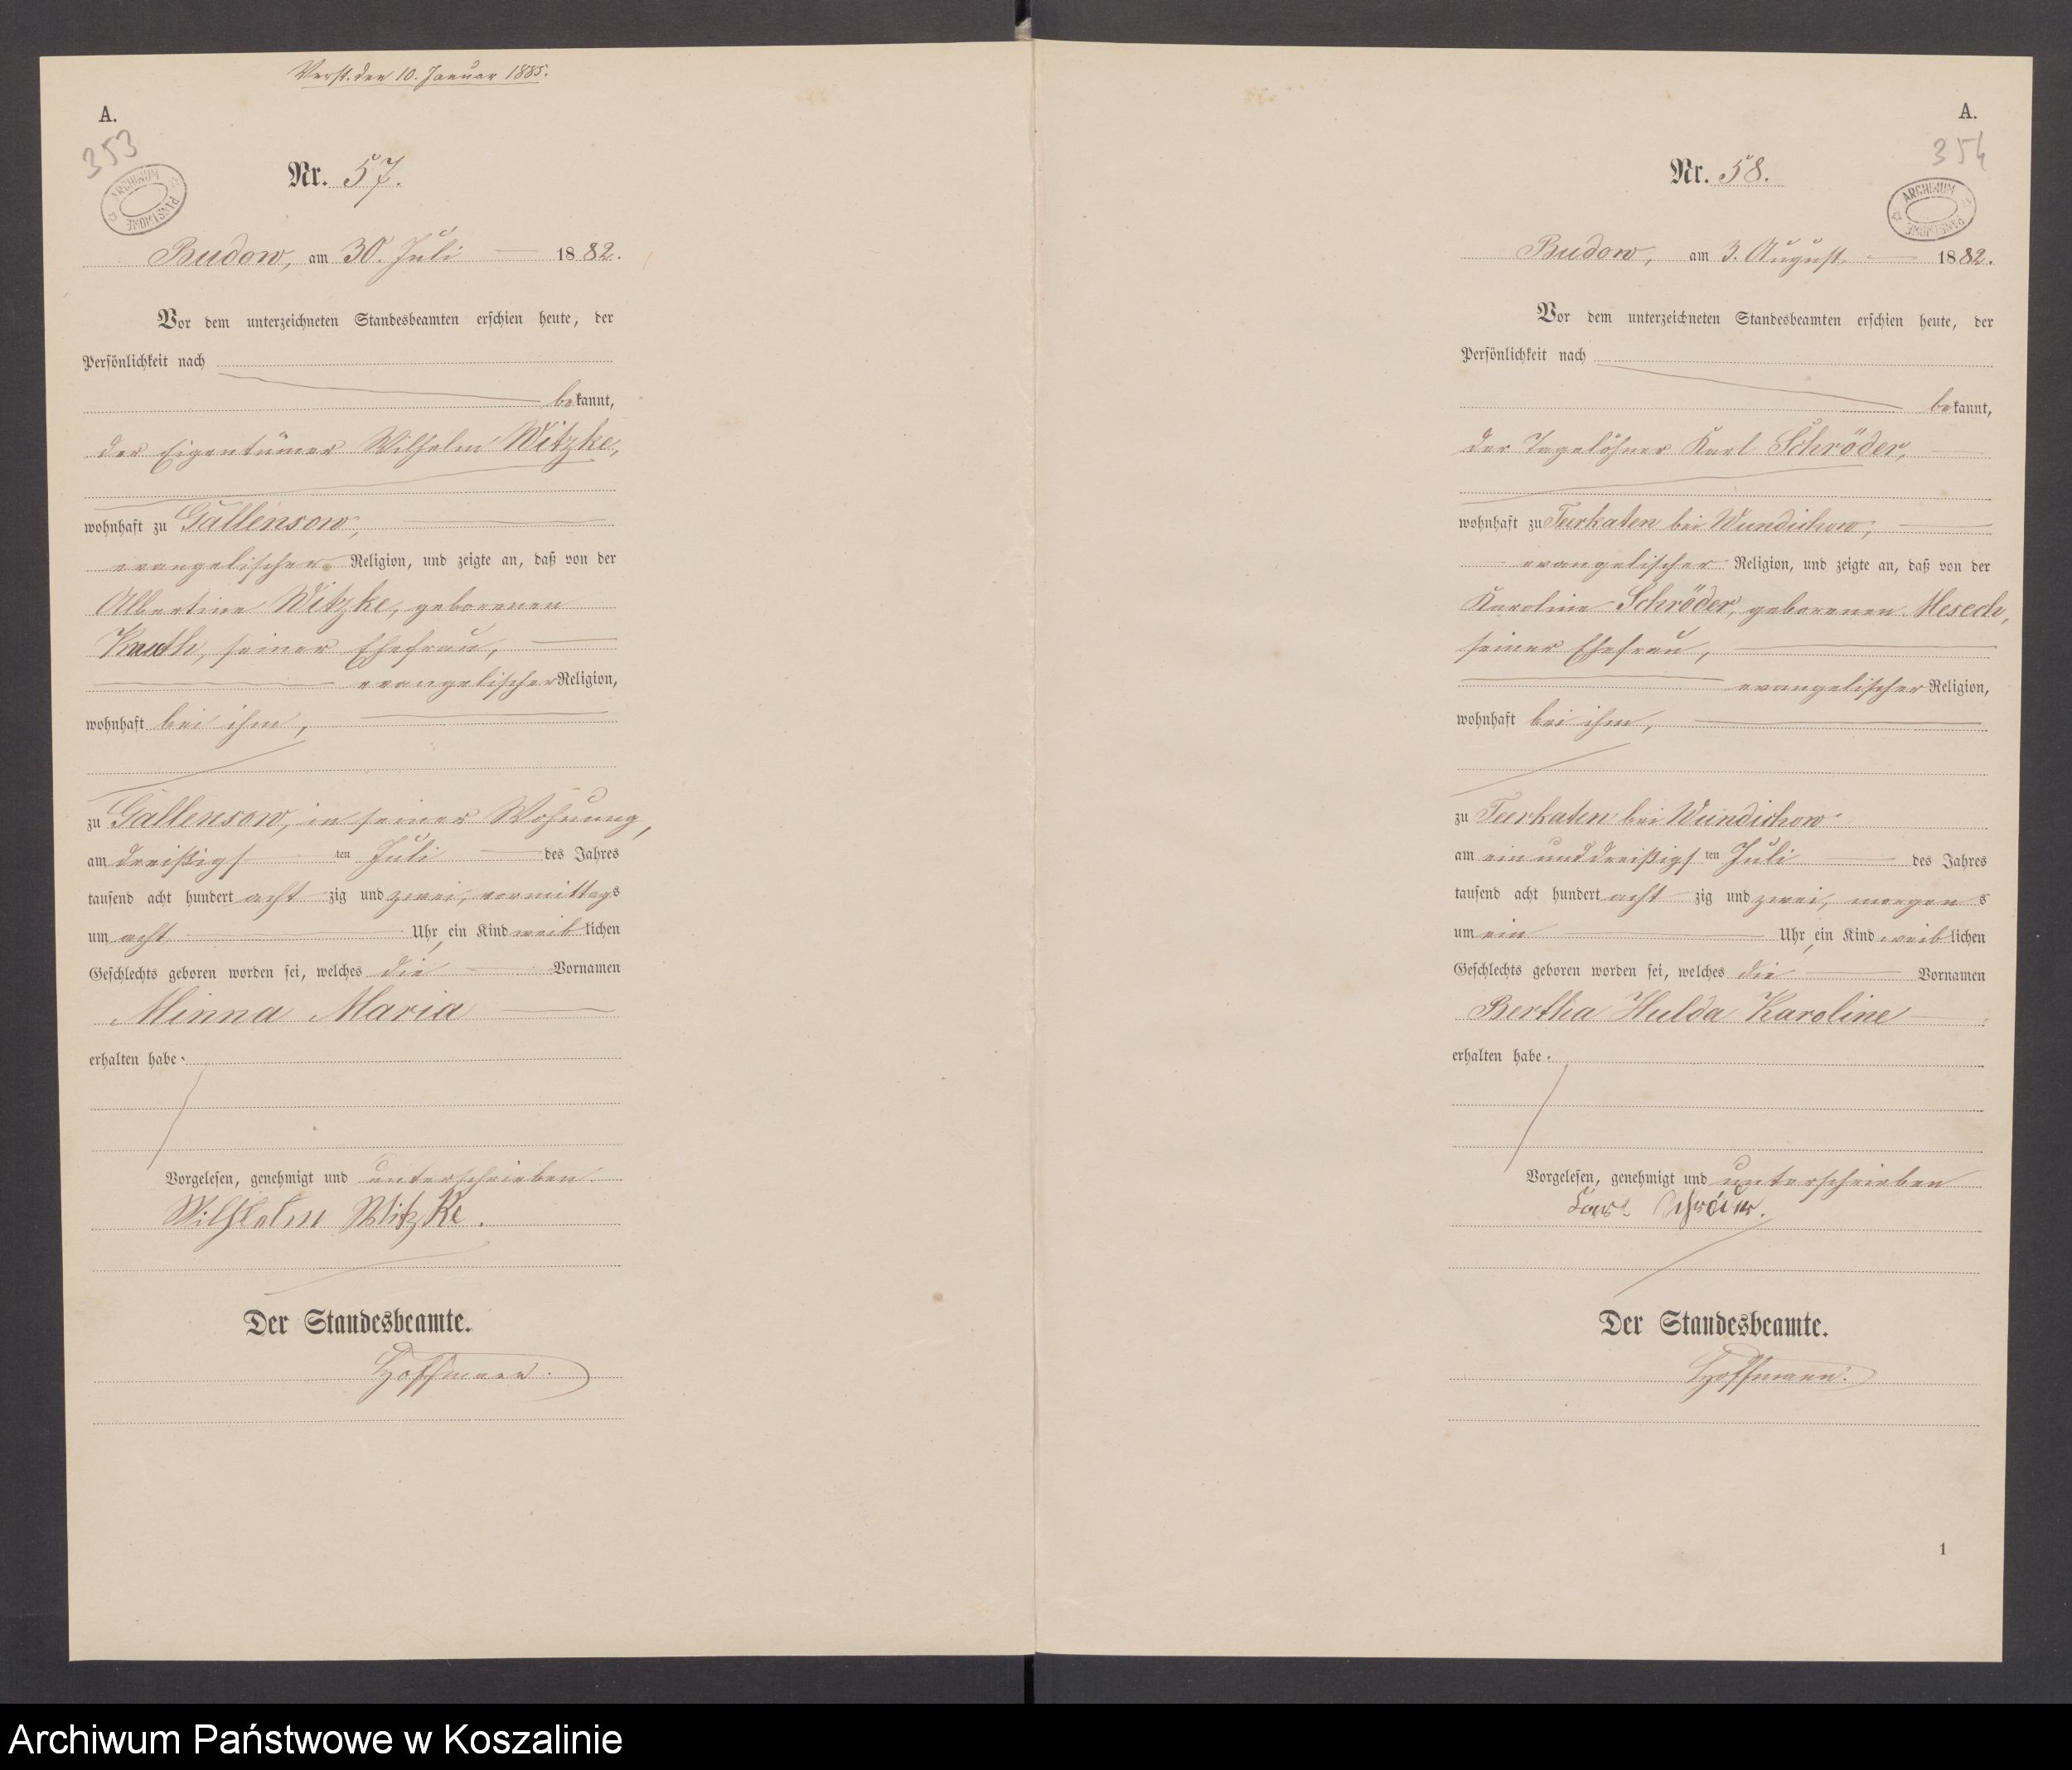 Verst. den 10. Januar 1885.
A.
353
ARCHIWUM PAŃSTWOWE
Nr. 57.
Budow, am 30. Juli 1882.
Vor dem unterzeichneten Standesbeamten erschien heute, der
Persönlichkeit nach
bekannt,
der Eigentümer Wilhelm Witzke,
wohnhaft zu Gallensow,
evangelischer Religion, und zeigte an, daß von der
Albertine Witzke, geborenen
seiner Ehefrau,
evangelischer Religion,
wohnhaft bei ihm,
zu Gallensow, in seiner Wohnung,
am dreißigsten Juli des Jahres
tausend acht hundert achtzig und zwei, vormittags
um acht Uhr, ein Kind weiblichen
Geschlechts geboren worden sei, welches die Vornamen
Minna Maria
erhalten habe.
Vorgelesen, genehmigt und unterschrieben
Wilhelm Witzke.
Der Standesbeamte.
Hoffmann.
A.
354
ARCHIWUM PAŃSTWOWE
Nr. 58.
Budow, am 3. August 1882.
Vor dem unterzeichneten Standesbeamten erschien heute, der
Persönlichkeit nach
bekannt,
der Tagelöhner Karl Schröder,
wohnhaft zu Teerkaten bei Wundichow,
evangelischer Religion, und zeigte an, daß von der
Karoline Schröder, geborenen Mesech,
seiner Ehefrau,
evangelischer Religion,
wohnhaft bei ihm,
zu Teerkaten bei Wundichow
am ein und dreißigsten Juli des Jahres
tausend acht hundert achtzig und zwei, morgens
um ein Uhr, ein Kind weiblichen
Geschlechts geboren worden sei, welches die Vornamen
Bertha Hulda Karoline
erhalten habe.
Vorgelesen, genehmigt und unterschrieben
Karl Schröder.
Der Standesbeamte.
Hoffmann.
1
Archiwum Państwowe w Koszalinie